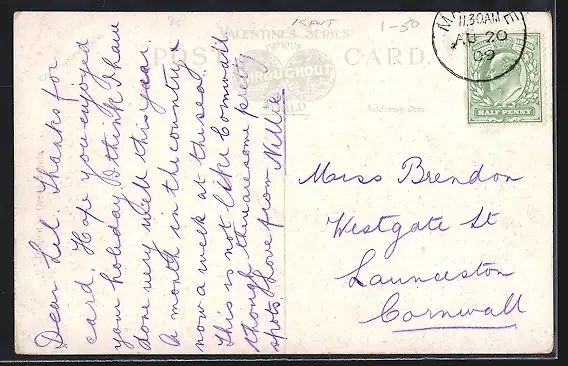 1-50
VALENTINE'S SERIES
FAMOUS
THROUGHOUT
WORLD
POST CARD.
Address Only
11.30AM
AU 20
09
HALF PENNY
Dear Lil. Thanks for
card. Hope you enjoyed
your holiday. I think I have
done very well this year.
A month in the country &
now a week at the sea.
This is not like Cornwall
though there are some pretty
spots. Love from Nellie
Miss Brendon
Westgate St
Launceston
Cornwall